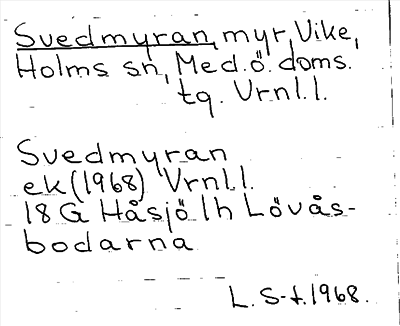 Svedmyran, myr, Vike,
Holms sn, Med.ö. doms.
tg. Vrnl.l.
Svedmyran
ek (1968) Vrnl.l.
18 G Håsjö lh Lövås-
bodarna
L. S-t. 1968.